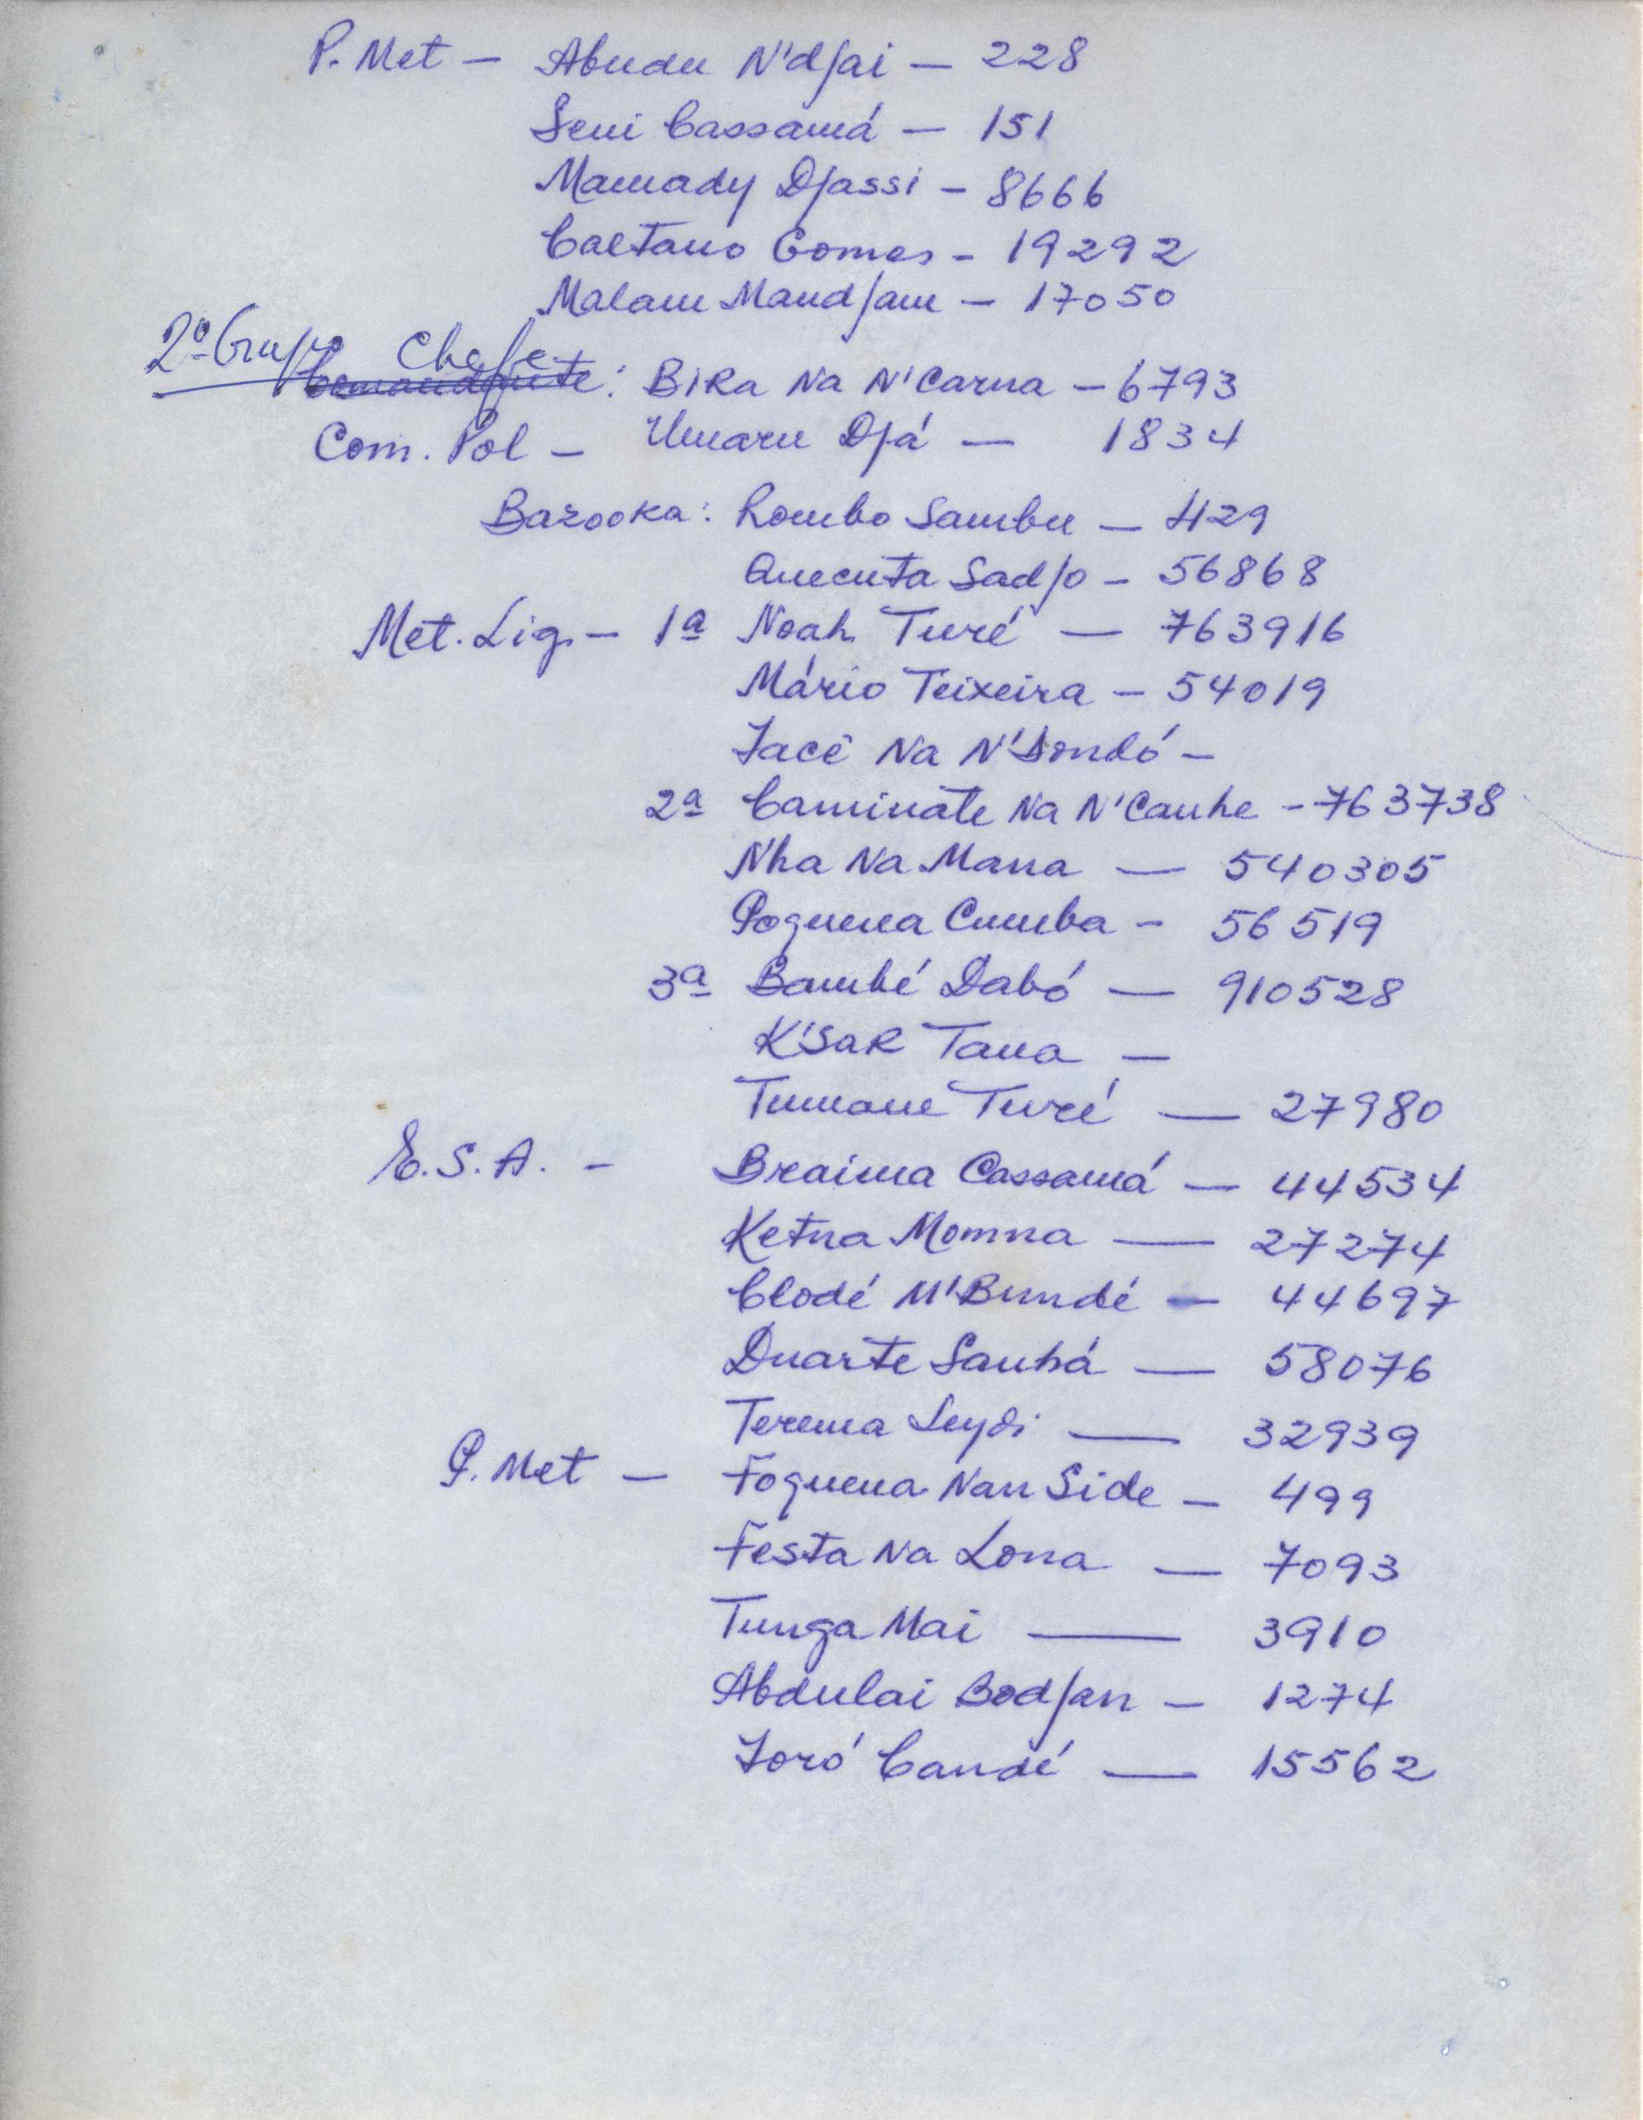 P. Met — Abudu N'djai — 228
Seni Cassamá — 151
Mamady Djassi — 8666
Caetano Gomes — 19292
Malam Mandjam — 17050
2º Grupo Chefe
Comandante: BiRa Na N'Carna — 6793
Com. Pol — Umaru Djá — 1834
Bazooka: Rombo Sambu — 429
Quecuta Sadjo — 56868
Met. Lig. — 1ª Noah Turé — 763916
Mário Teixeira — 54019
Iacê Na N'Dondó —
2ª Caminate Na N'Canhe — 763738
N'ha Na Mana — 540305
Poquena Cumba — 56519
3ª Bambé Dabó — 910528
K'SaR Tana —
Tumane Turé — 27980
E.S.A. — Braima Cassamá — 44534
Ketna Momna — 27274
Clodé M'Bundé — 44697
Duarte Sanhá — 58076
Terema Seydi — 32939
P. Met — Foquena Nan Side — 499
Festa Na Lona — 7093
Tunga Mai — 3910
Abdulai Bodjan — 1274
Ioró Candé — 15562